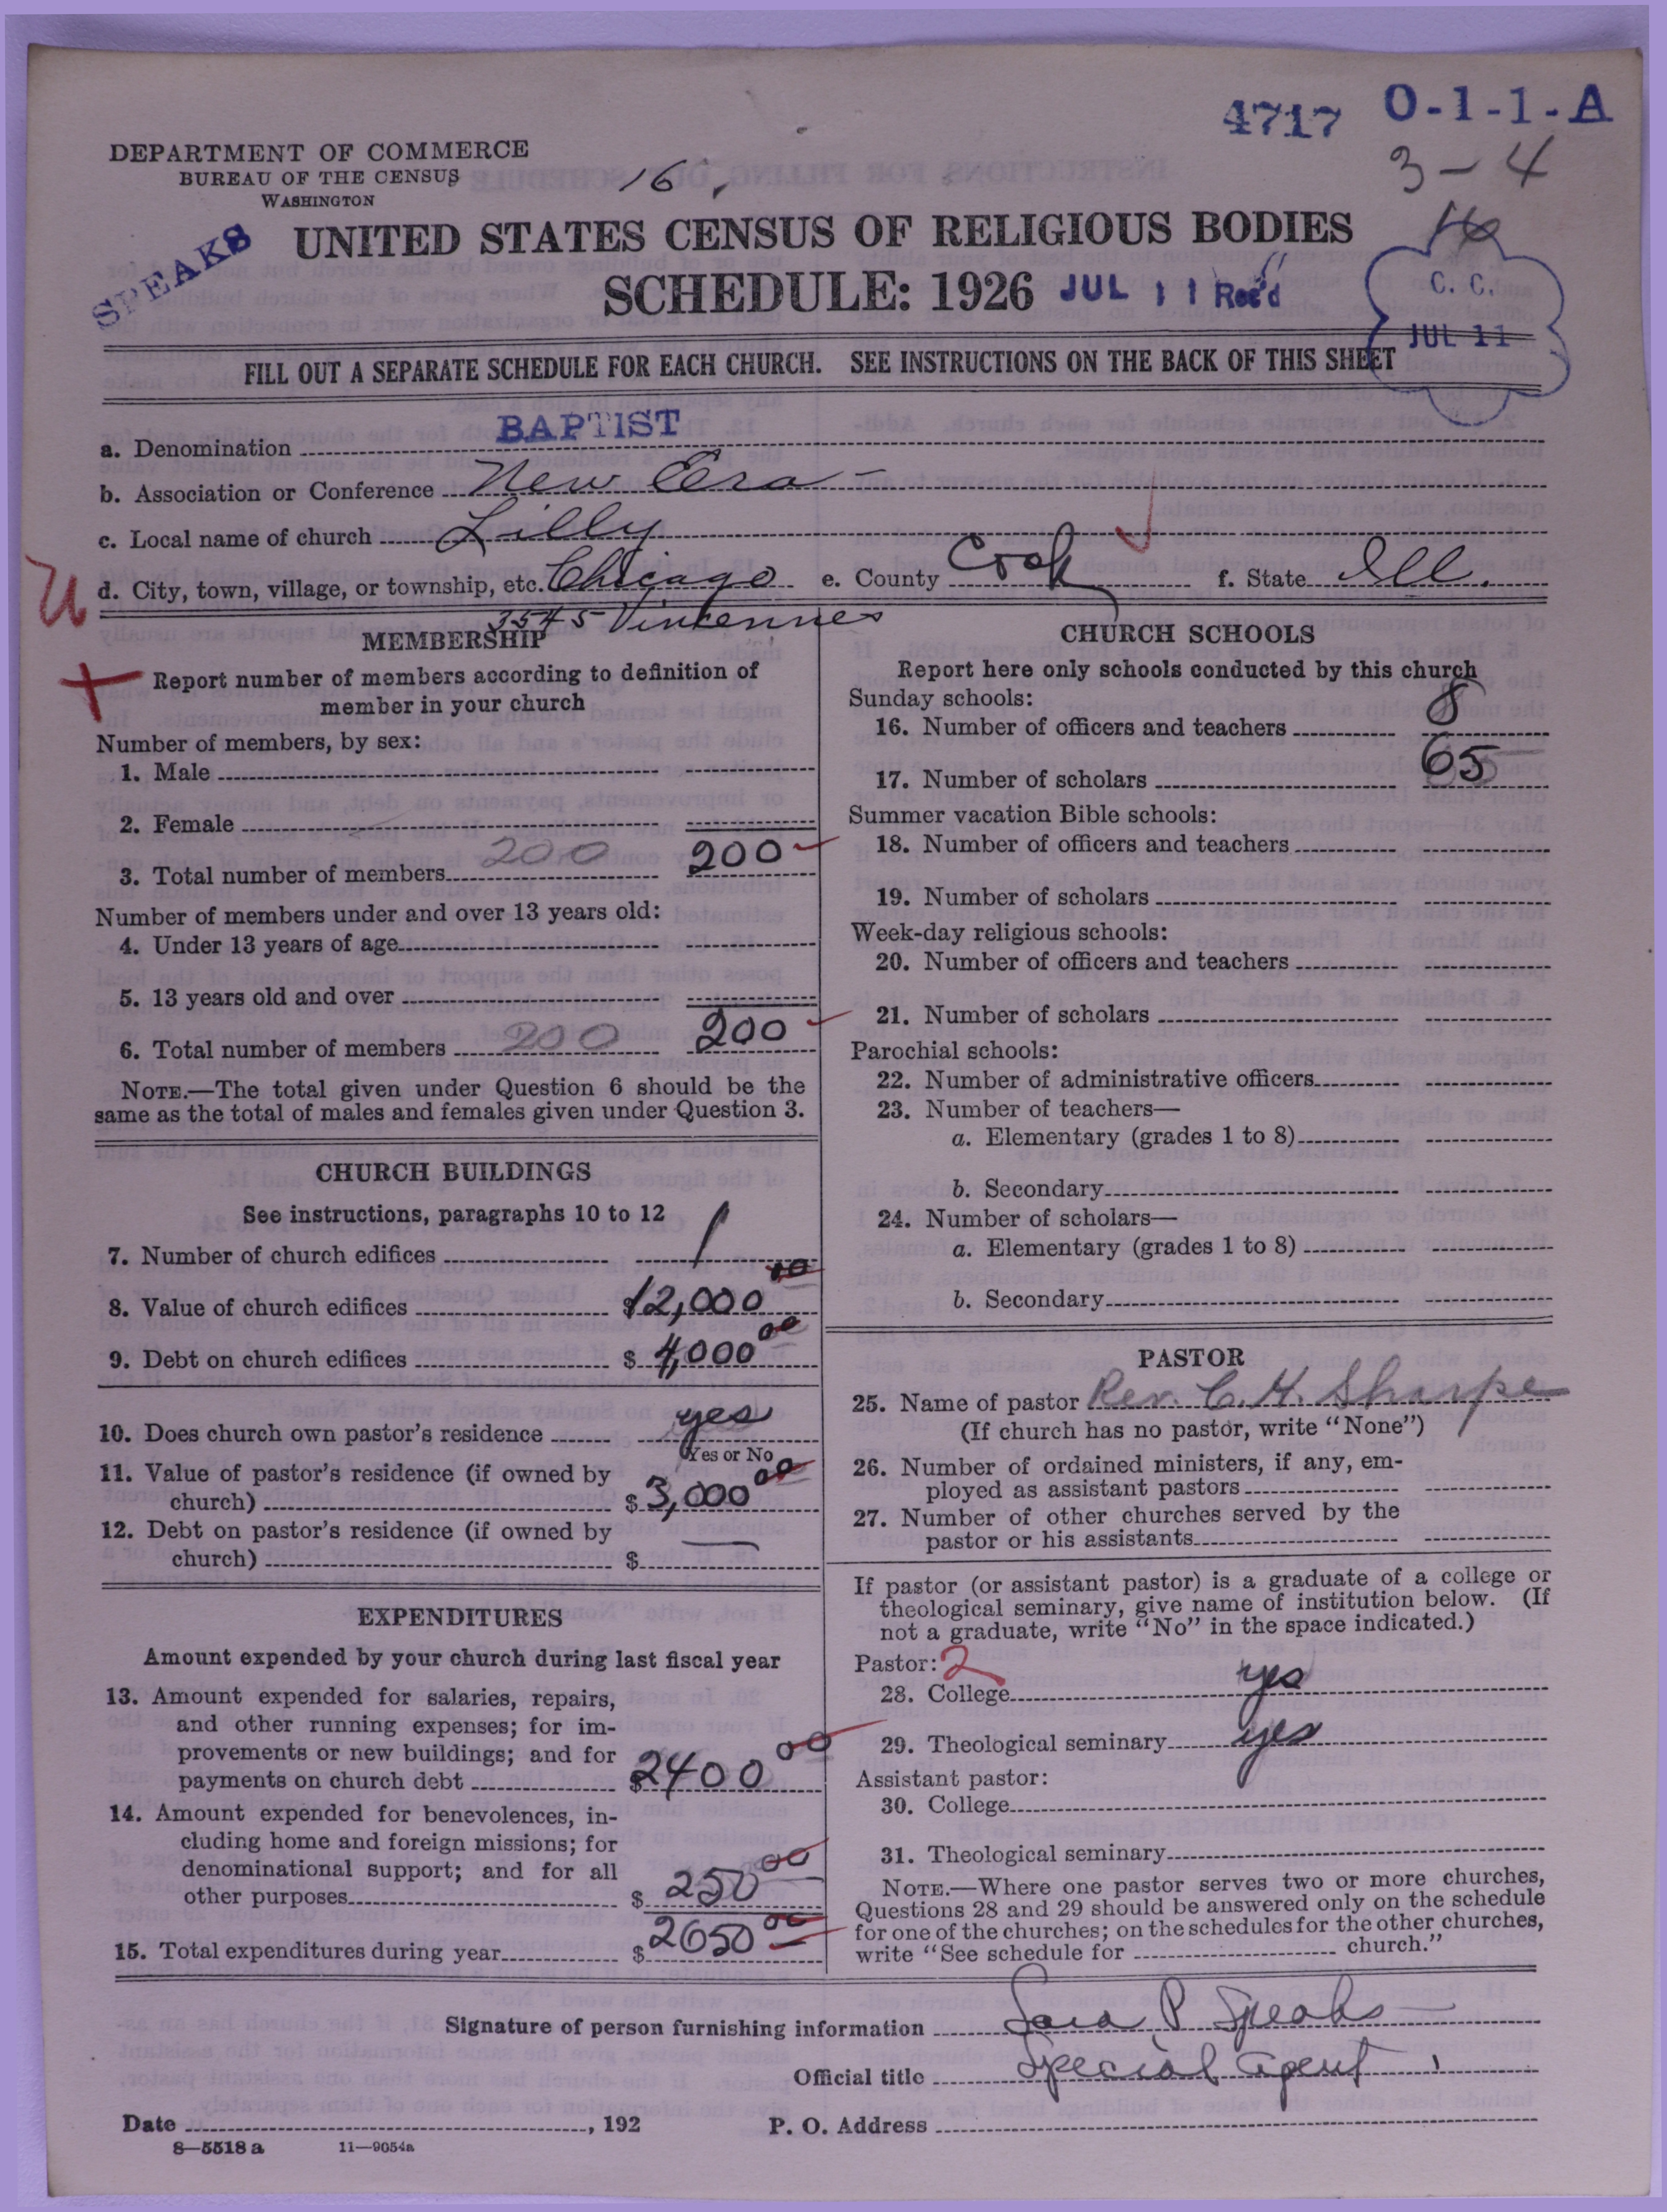 4717 O-1-1-A
3-4
DEPARTMENT OF COMMERCE
BUREAU OF THE CENSUS
WASHINGTON
16
SPEAKS
UNITED STATES CENSUS OF RELIGIOUS BODIES
SCHEDULE: 1926 JUL 11 Rec'd
C. C.
JUL 11
FILL OUT A SEPARATE SCHEDULE FOR EACH CHURCH. SEE INSTRUCTIONS ON THE BACK OF THIS SHEET
a. Denomination BAPTIST
b. Association or Conference New Era
c. Local name of church Lilly
d. City, town, village, or township, etc. Chicago e. County Cook f. State Ill.
3545 Vincennes
MEMBERSHIP
Report number of members according to definition of
member in your church
Number of members, by sex:
1. Male
2. Female
3. Total number of members 200 200
Number of members under and over 13 years old:
4. Under 13 years of age
5. 13 years old and over
6. Total number of members 200 200
NOTE.—The total given under Question 6 should be the
same as the total of males and females given under Question 3.
CHURCH BUILDINGS
See instructions, paragraphs 10 to 12
7. Number of church edifices 1
8. Value of church edifices $12,000 00
9. Debt on church edifices $ 4,000 00
10. Does church own pastor's residence yes
Yes or No
11. Value of pastor's residence (if owned by
church) $ 3,000 00
12. Debt on pastor's residence (if owned by
church) $ —
EXPENDITURES
Amount expended by your church during last fiscal year
13. Amount expended for salaries, repairs,
and other running expenses; for im-
provements or new buildings; and for
payments on church debt $2400 00
14. Amount expended for benevolences, in-
cluding home and foreign missions; for
denominational support; and for all
other purposes $ 250 00
15. Total expenditures during year $ 2650 00
CHURCH SCHOOLS
Report here only schools conducted by this church
Sunday schools:
16. Number of officers and teachers 8
17. Number of scholars 65
Summer vacation Bible schools:
18. Number of officers and teachers
19. Number of scholars
Week-day religious schools:
20. Number of officers and teachers
21. Number of scholars
Parochial schools:
22. Number of administrative officers
23. Number of teachers—
a. Elementary (grades 1 to 8)
b. Secondary
24. Number of scholars—
a. Elementary (grades 1 to 8)
b. Secondary
PASTOR
25. Name of pastor Rev. C. H. Sharpe
(If church has no pastor, write "None")
26. Number of ordained ministers, if any, em-
ployed as assistant pastors
27. Number of other churches served by the
pastor or his assistants
If pastor (or assistant pastor) is a graduate of a college or
theological seminary, give name of institution below. (If
not a graduate, write "No" in the space indicated.)
Pastor: 2
28. College yes
29. Theological seminary yes
Assistant pastor:
30. College
31. Theological seminary
NOTE.—Where one pastor serves two or more churches,
Questions 28 and 29 should be answered only on the schedule
for one of the churches; on the schedules for the other churches,
write "See schedule for church."
Signature of person furnishing information Sara P Speaks
Official title Special Agent
Date , 192 P. O. Address
8—5518 a 11—9054a